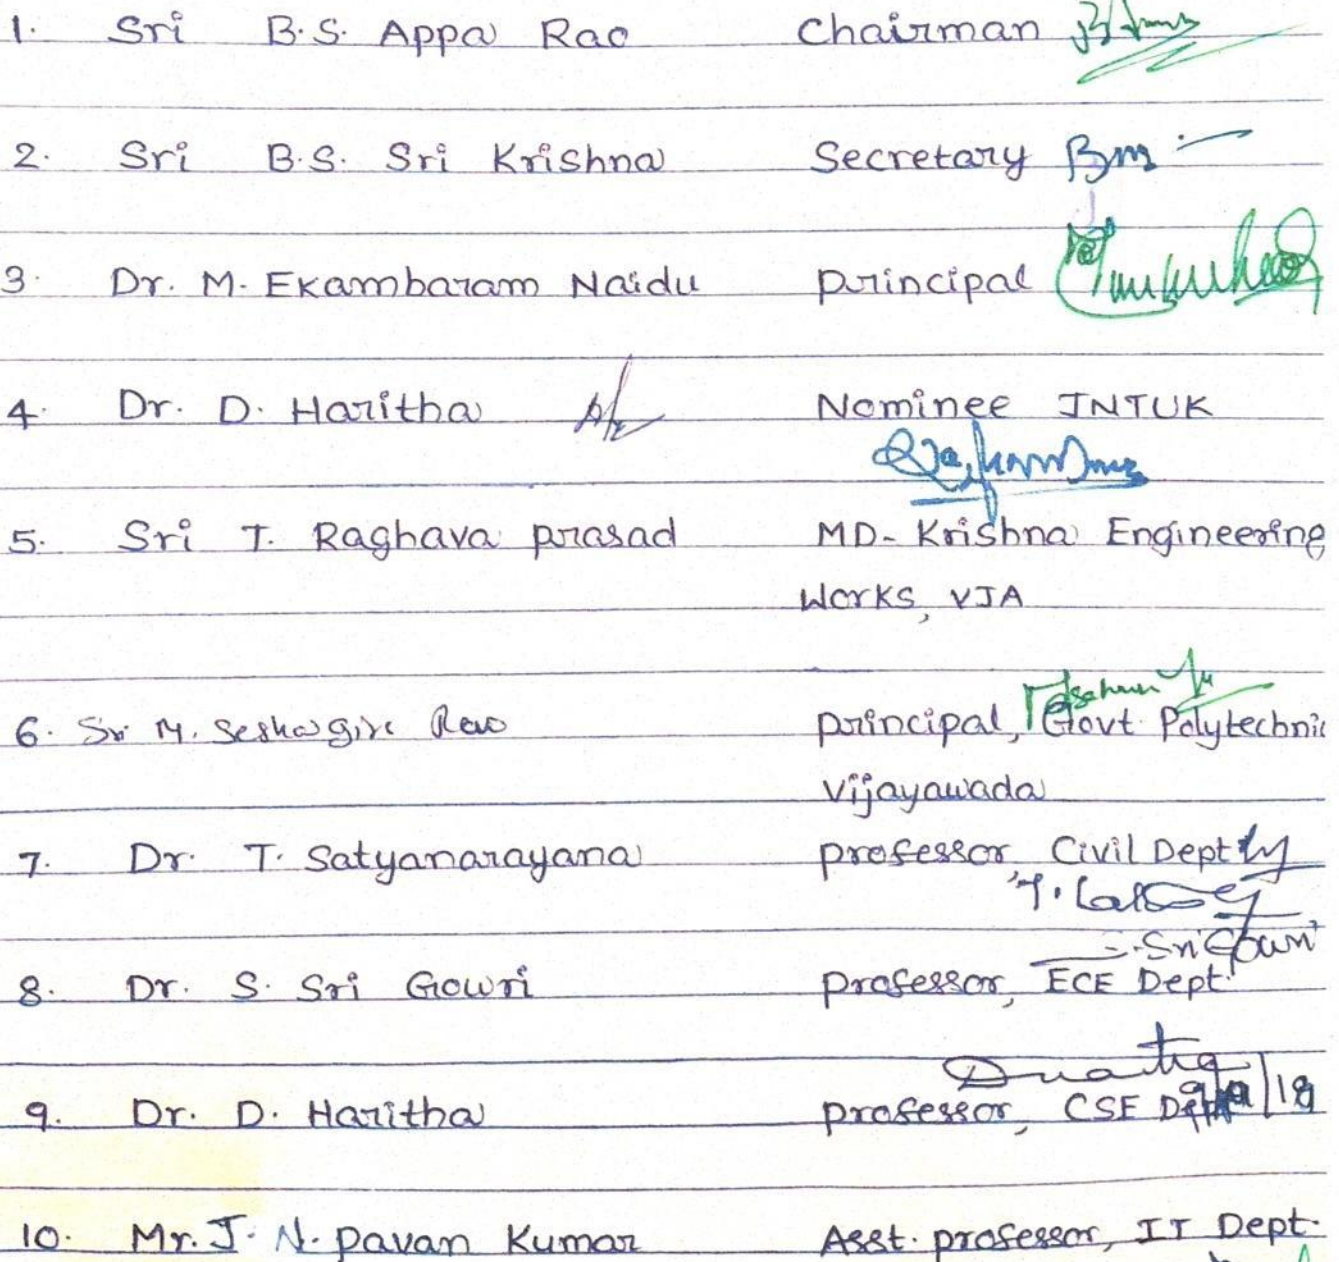 1. Sri B.S. Appa Rao Chairman
2. Sri B.S. Sri Krishna Secretary
3. Dr. M. Ekambaram Naidu principal
4. Dr. D. Haritha Nominee JNTUK
5. Sri T. Raghava prasad MD- Krishna Engineering
Works, VJA
6. Sri M. Seshagiri Rao principal, Govt. Polytechnic
Vijayawada
7. Dr. T. Satyanarayana professor Civil Dept
8. Dr. S. Sri Gowri professor, ECE Dept.
9. Dr. D. Haritha professor, CSE Dept
10. Mr. J. N. Pavan Kumar Asst. professor, IT Dept.